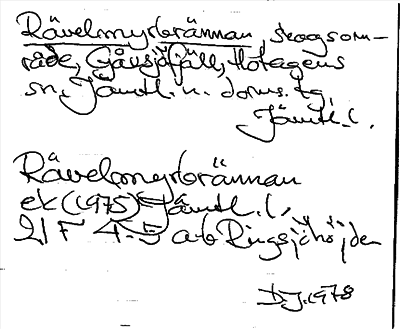 Rävelmyrbrännan, skogsom-
råde, Gåxsjöfjäll, Hotagens
sn. Jämtl. n. doms. tg,
Jämtl. l.
Rävelmyrbrännan
ek (1975) Jämtl. l.
21 F 4-5 a-b Ringsjöhöjden
D.J. 1978